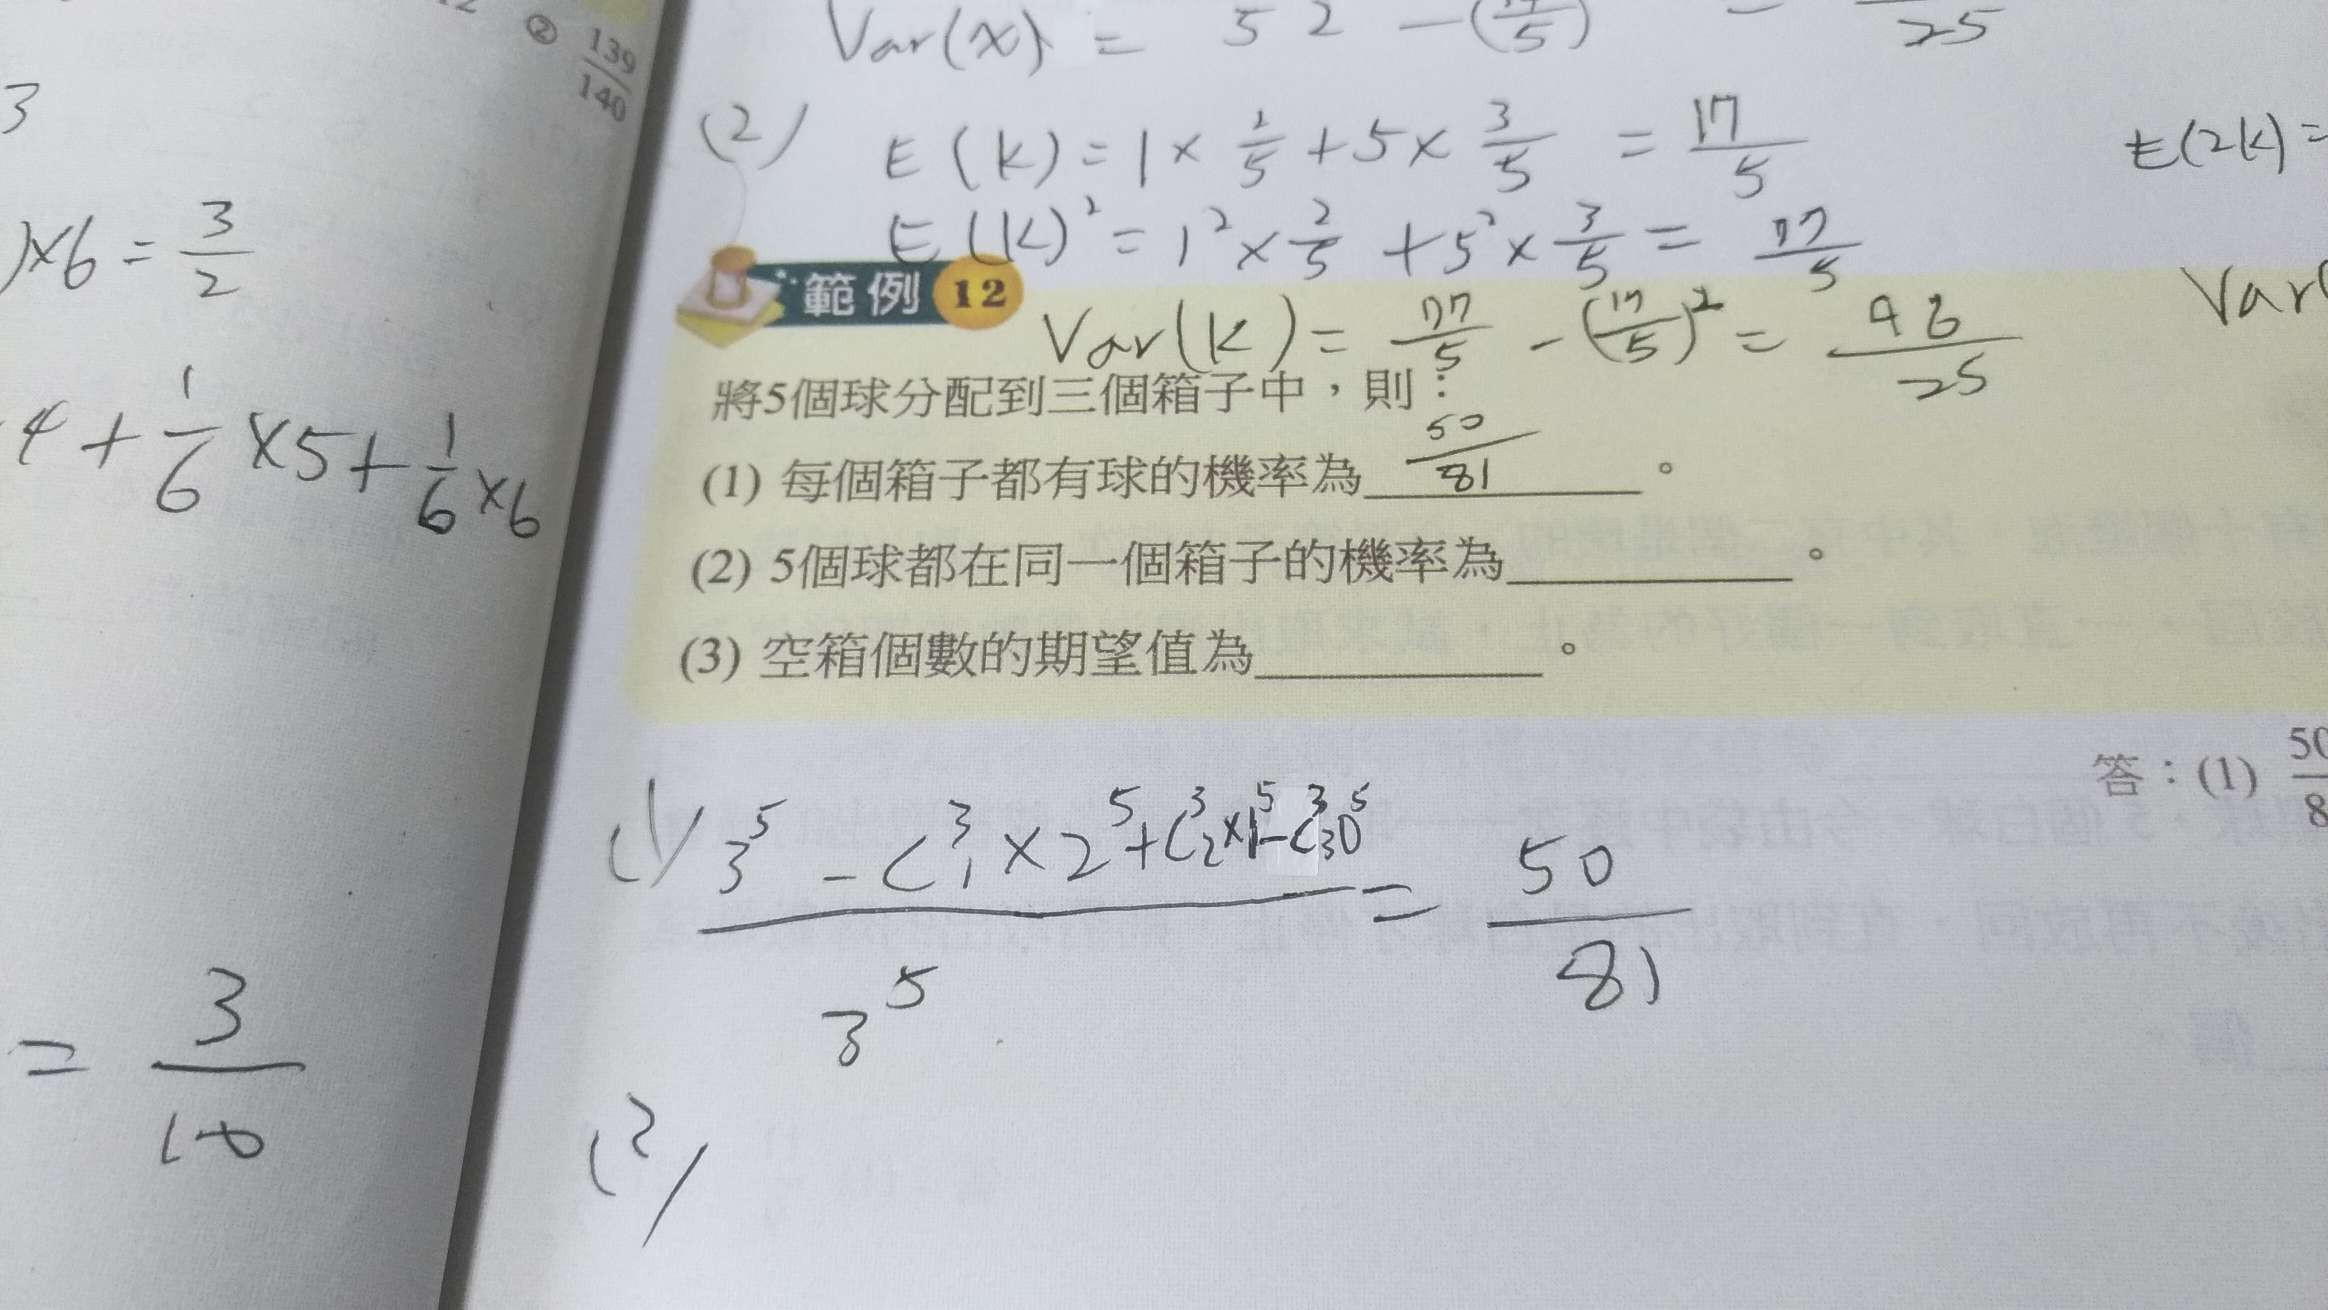 ② 139/140
3
)×6 = 3/2
4 + 1/6 ×5 + 1/6 ×6
= 3/10
Var(x) = 52 - (17/5) = /25
(2) E(k) = 1 × 2/5 + 5 × 3/5 = 17/5 E(2k) =
E(k)² = 1² × 2/5 + 5² × 3/5 = 77/5
範例 12
Var(k) = 77/5 - (17/5)² = 96/25 Var(
將5個球分配到三個箱子中，則：
(1) 每個箱子都有球的機率為 50/81 。
(2) 5個球都在同一個箱子的機率為 。
(3) 空箱個數的期望值為 。
答：(1) 50/8
(1) 3⁵ - C³₁ × 2⁵ + C³₂ × 1⁵ - C³₃0⁵ / 3⁵ = 50/81
(2)